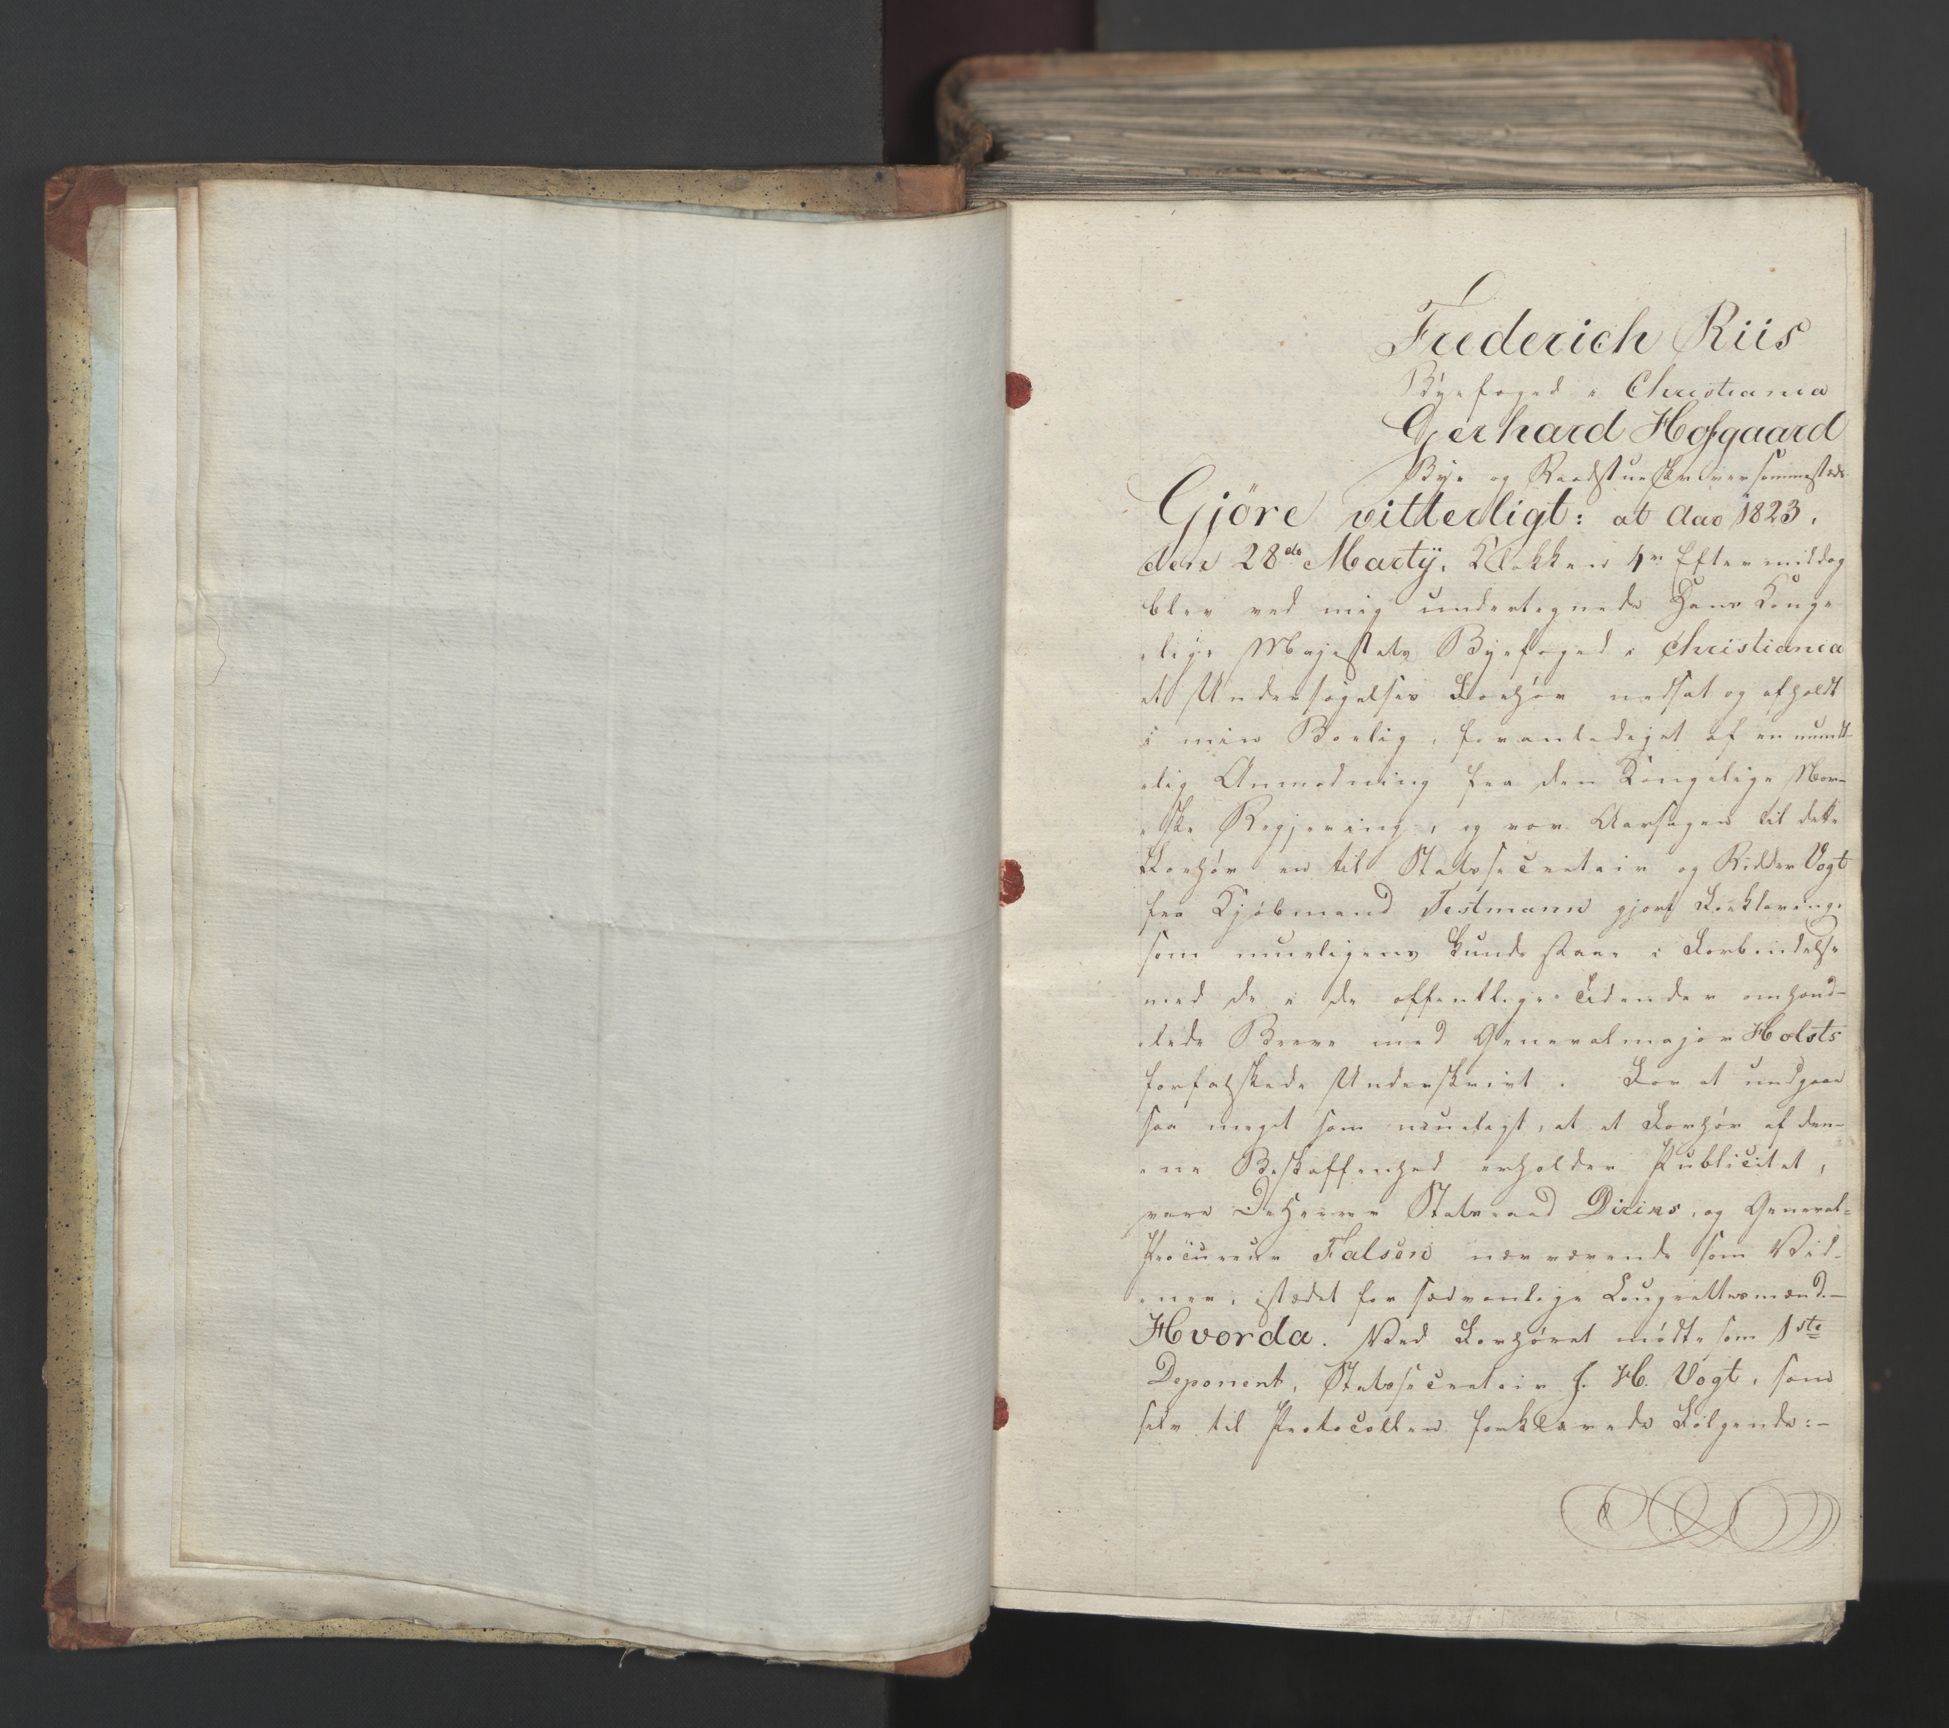 Frederich Riis
Byefoged i Christiania
Gerhard Hofgaard
Bye og Raadstueskriver sammestæds
Gjöre vitterligt: at Aao 1823,
den 28de Martÿ, Klokken 4re Eftermiddag
blev ved mig undertegnede Hans Konge-
-lige Majestæts Byefoged i Christiania
et Undersøgelses Forhør nedsat og afholdt
i min Boelig, foranlediget af en mundt-
-lig Anmodning fra den Kongelige Nor-
-ske Regjering, og var Aarsagen til dette
Forhør en til Statssecretair og Ridder Vogt
fra Kjøbmand Testmann gjort Forklaring,
som mueligens kunde staae i Forbindelse
med de i de offentlige Tidender omhand-
-lede Breve med Generalmajor Holsts
forfalskede Underskrivt. For at undgaae
saa meget som mueligt, at et Forhør af den-
-ne Beskaffenhed erholder Publicitet,
vare De Herrer Statsraad Diriks, og General-
Procureur Falsen nærværende som Vid-
-ner, istædet for sædvanlige Laugrettesmænd.-
Hvorda. Ved Forhøret mødte som 1ste
Deponent, Statssecretair J. H. Vogt, som
selv til Protocollen forklarede Følgende:-